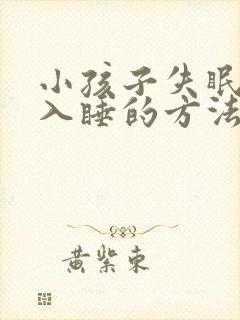 小孩子失眠
入睡的方法
黄紫东